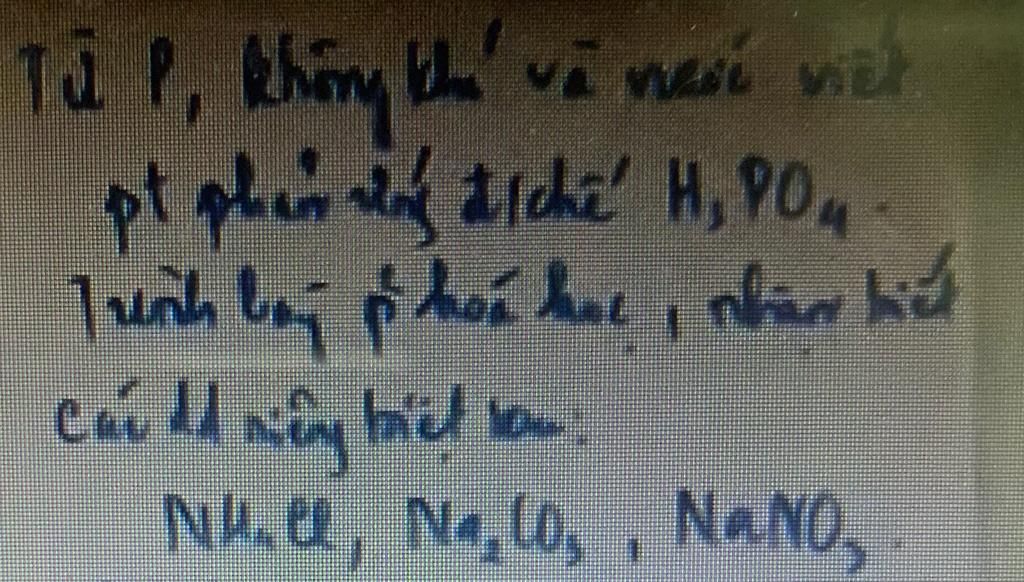 Từ P, không khí và nước viết
pt phản ứng đ/chế H₃PO₄.
Trình bày p² hoá học, nhận biết
các dd riêng biệt sau:
NH₄Cl, Na₂CO₃, NaNO₃.